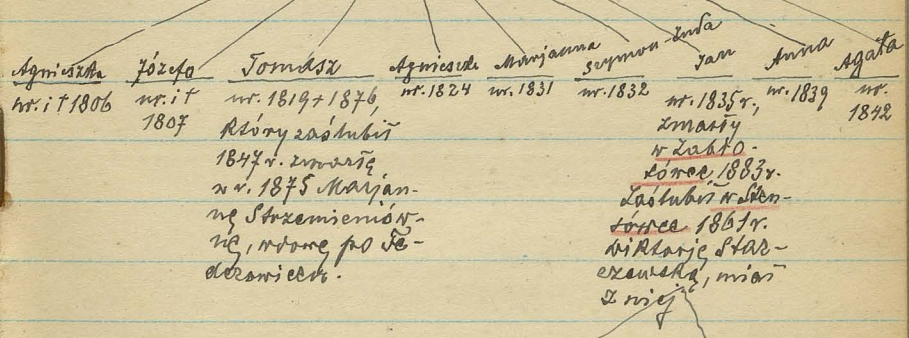 Agnieszka
ur. i † 1806
Józefa
ur. i †
1807
Tomasz
ur. 1819 + 1876,
który zaślubił
1847 r. zmarłą
w r. 1875 Marjan-
nę Strzemieniów-
nę, wdowę po Fe-
derowiczu.
Agnieszka
ur. 1824
Marjanna
ur. 1831
Szymon-Juda
ur. 1832
Jan
ur. 1835 r.,
zmarły
w Zabło-
łówce 1883 r.
Zaślubił w Szen-
łówce 1861 r.
Wiktorję Star-
czewską, miał
z niej
Anna
ur. 1839
Agata
ur.
1842